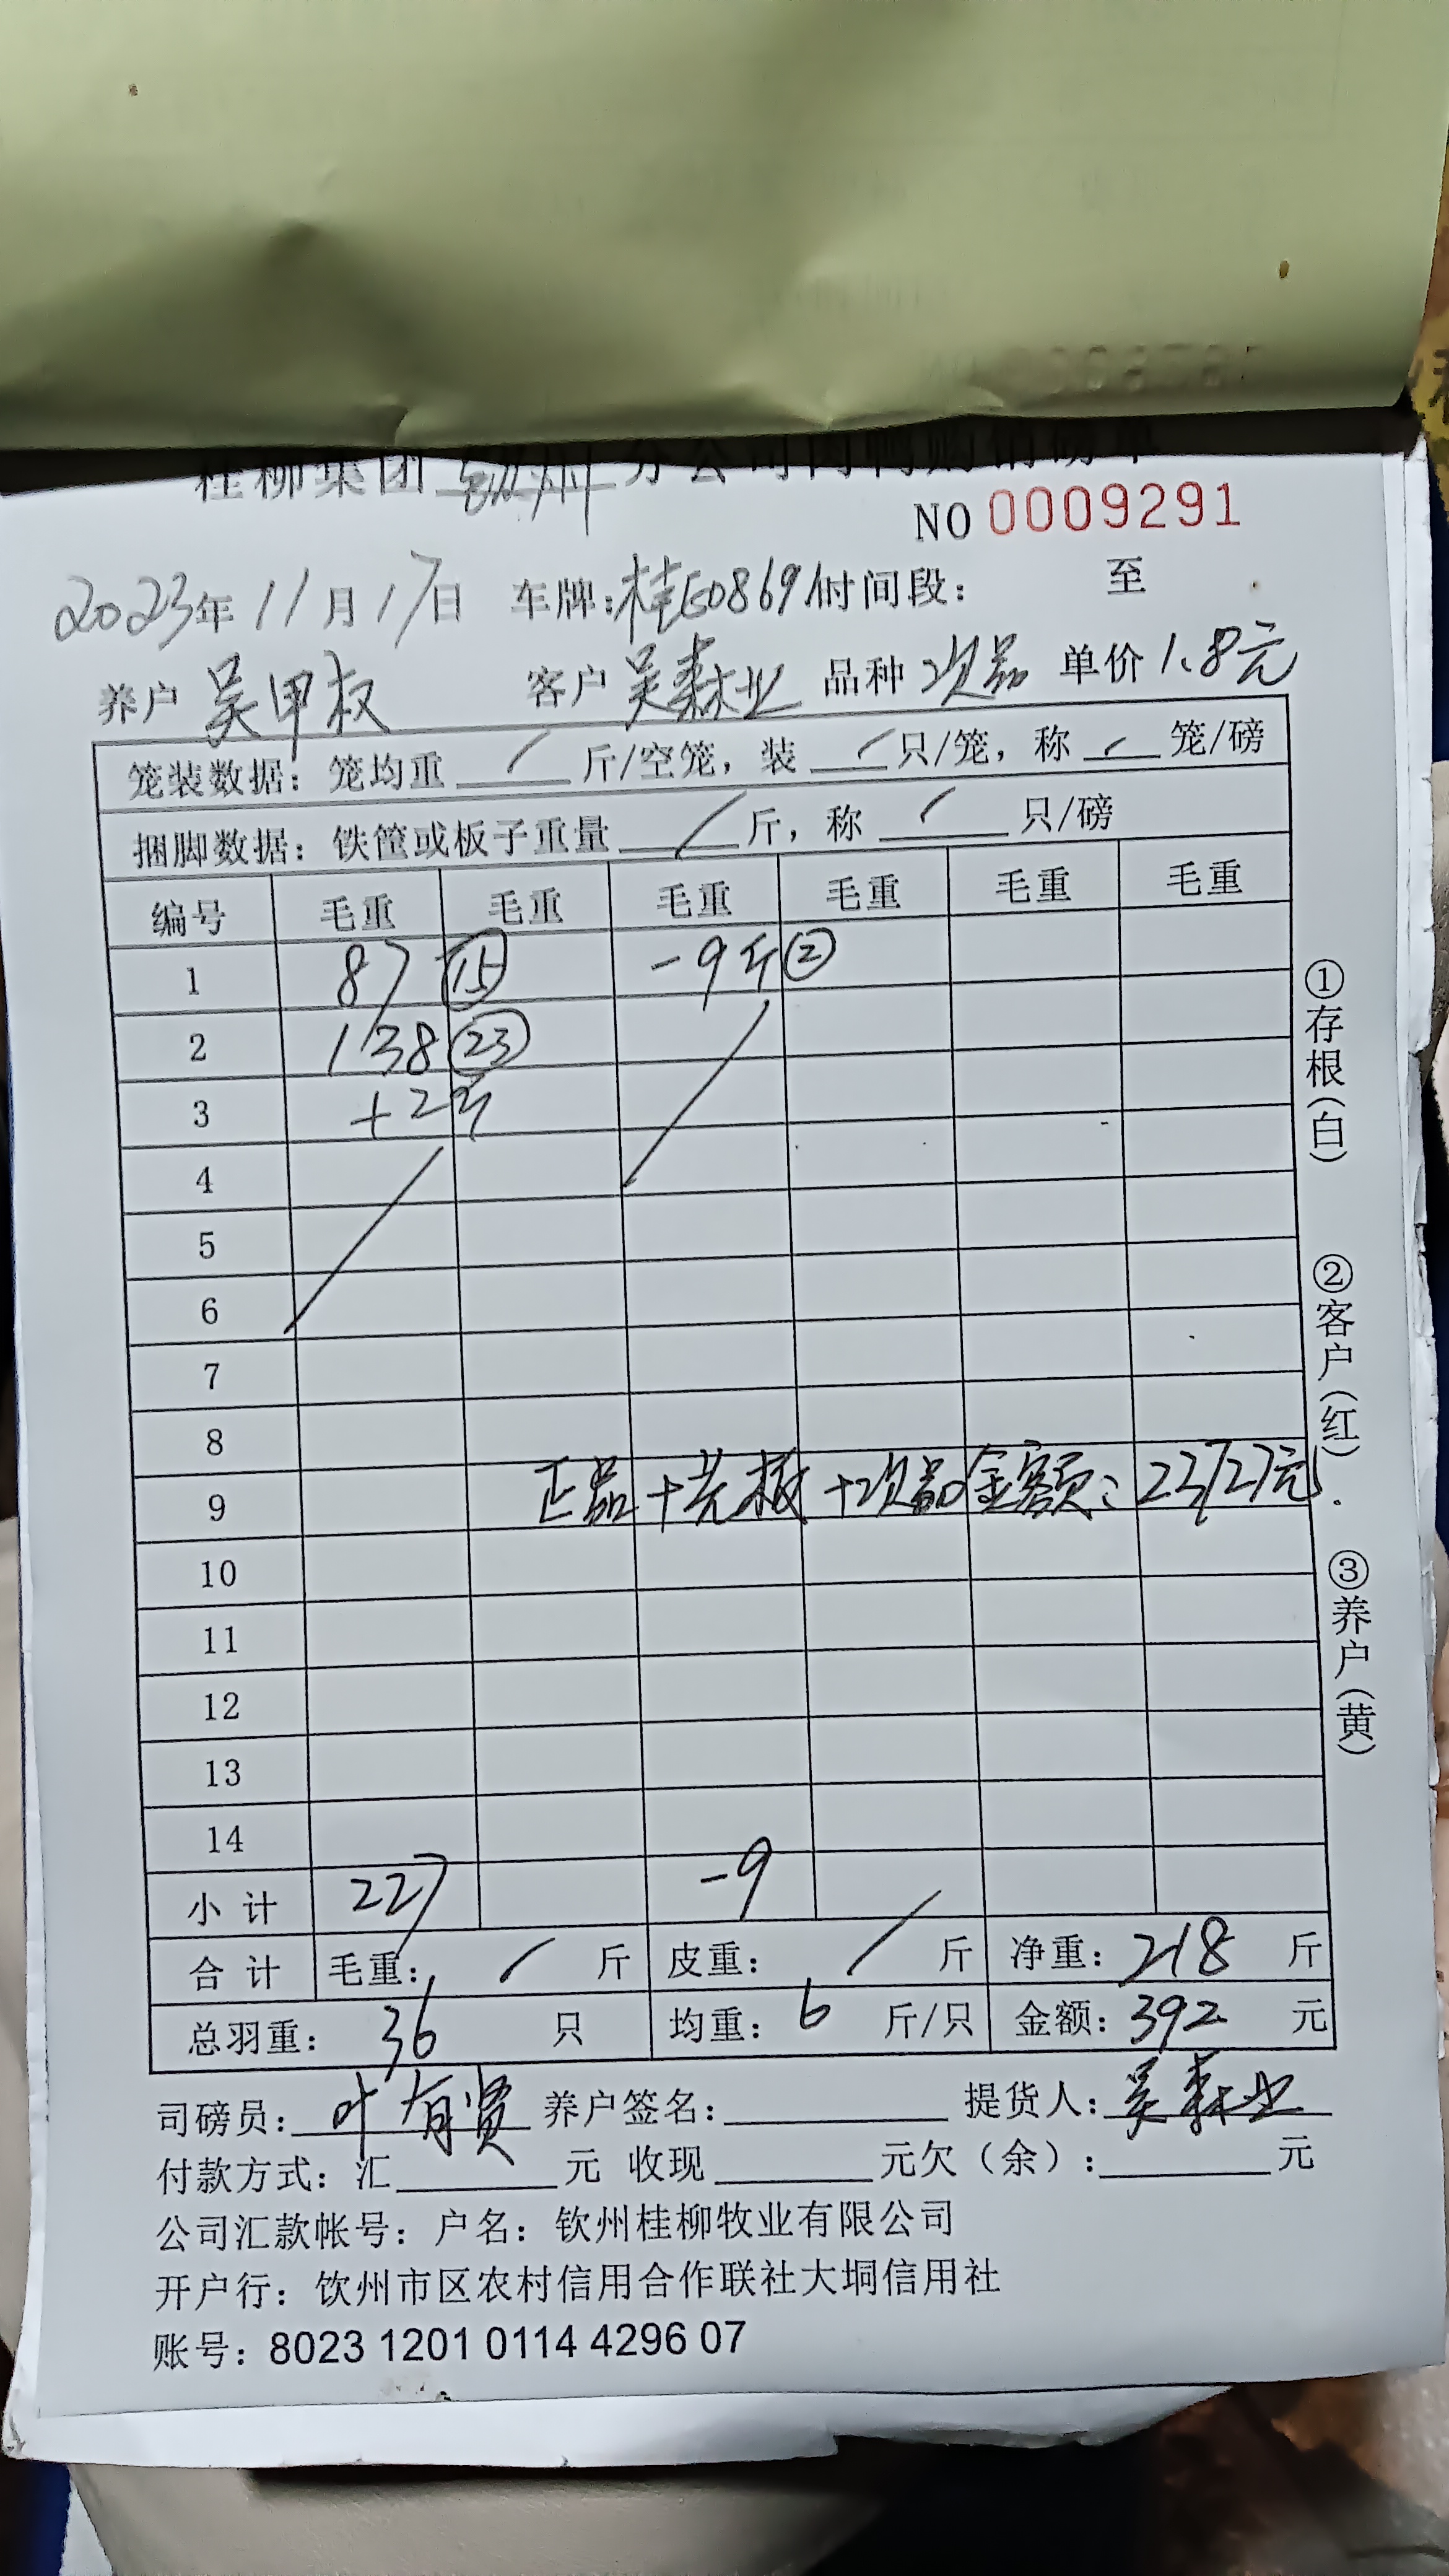 桂柳集团钦州分公司肉鸭购销磅单
NO 0009291
2023年11月17日 车牌:桂E08691时间段: 至
养户 吴甲权 客户 吴森业 品种 次品 单价 1.8元
笼装数据: 笼均重 / 斤/空笼, 装 / 只/笼, 称 / 笼/磅
捆脚数据: 铁筐或板子重量 / 斤, 称 / 只/磅
编号 毛重 毛重 毛重 毛重 毛重 毛重
1 87 ⑮ -9斤②
2 138 ㉓
3 +2斤
4
5
6
7
8
9 正品+光板+次品金额:
10
11
12
13
14
小计 227 -9
合计 毛重: / 斤 皮重: / 斤 净重: 218 斤
总羽重: 36 只 均重: 6 斤/只 金额: 392 元
司磅员: 叶有贤 养户签名: 提货人: 吴森业
付款方式: 汇 元 收现 元欠(余): 元
公司汇款帐号: 户名: 钦州桂柳牧业有限公司
开户行: 钦州市区农村信用合作联社大垌信用社
账号: 8023 1201 0114 4296 07
①存根(白)
②客户(红)
③养户(黄)